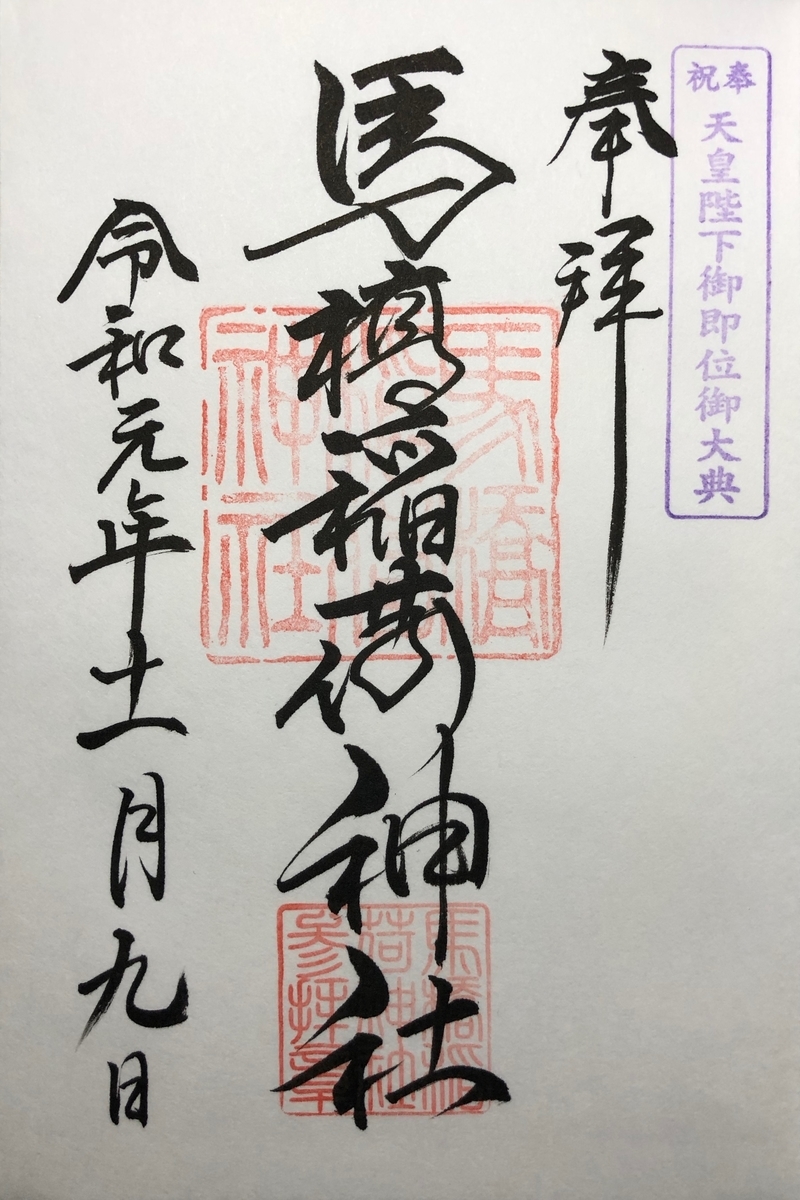 奉祝
天皇陛下御即位御大典
奉拝
馬橋稲荷神社
令和元年十一月九日
馬橋
神社
馬橋稲
荷神社
参拝章